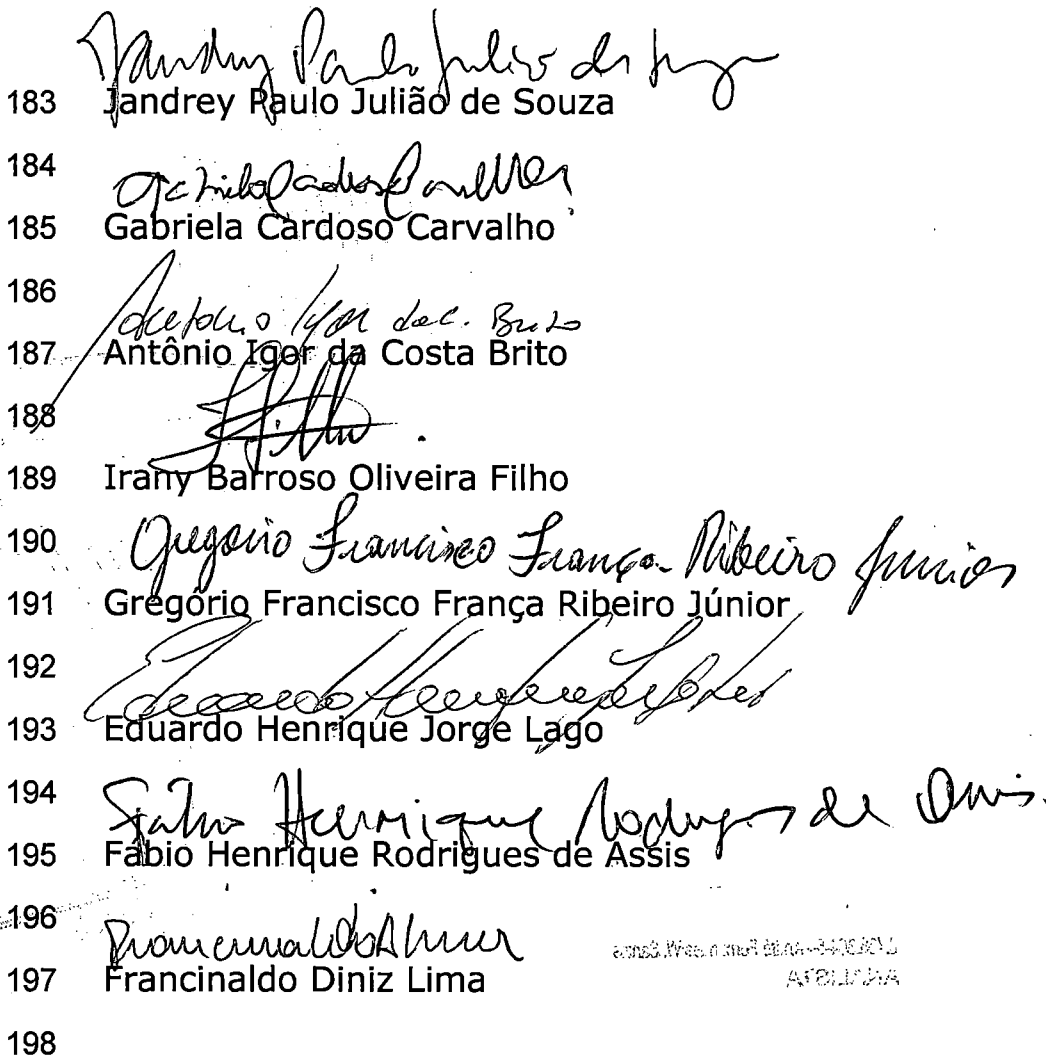 Jandrey Paulo Julião de Souza
183 Jandrey Paulo Julião de Souza
184
Gabriela Cardoso Carvalho
185 Gabriela Cardoso Carvalho
186
Antonio Igor da C. Brito
187 Antônio Igor da Costa Brito
188
Filho
189 Irany Barroso Oliveira Filho
190 Gregorio Francisco França Ribeiro Junior
191 Gregório Francisco França Ribeiro Júnior
192
Eduardo Henrique Jorge Lago
193 Eduardo Henrique Jorge Lago
194 Fabio Henrique Rodrigues de Assis
195 Fábio Henrique Rodrigues de Assis
196
197 Francinaldo Diniz Lima
ANALISTA
198